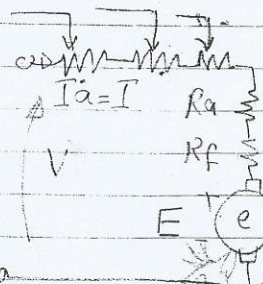 Ia = I
Ra
Rf
V
E
e